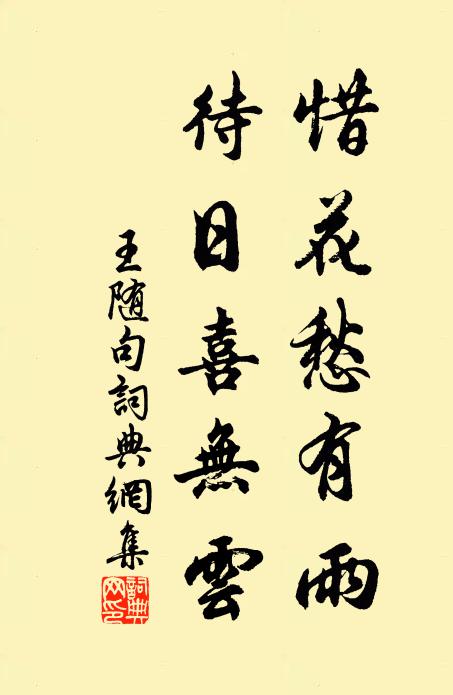 惜花愁有雨
待日喜無雲
王随句詞典網集
詞典
网印